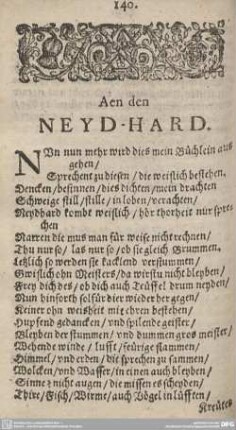 140.
Aen den
NEYD-HARD.
NUn nun mehr wird dies mein Büchlein aus
gehen/
Sprechent zu diesen/ die weislich bestehen.
Dencken/ besinnen/ dies dichten/ mein drachten
Schweige still/ stille/ in loben/ verachten/
Neydhard kombt weislich/ hör thorheit nur spre
chen
Narren die mus man für weise nicht rechnen/
Thu nur so/ las nur so/ ob sie gleich Brummen.
Letzlich so werden sie kacklend verstummen/
Gwislich ohn Meisters/ da wirstu nicht bleyben/
Frey dich des/ ob dich auch Teüffel drum neyden/
Nun hinforth sol für dier wieder her gegen/
Keiner ohn weisheit mit ehren bestehen/
Hupfend gedancken/ und spilende geister/
Bleyben der stummen/ und dummen gros meister/
Wehende winde/ lufft/ feürige flammen/
Himmel/ und erden/ die sprechen zu sammen/
Wolcken/ und Wasser/ in einen auch bleyben/
Sinne nicht augen/ die missen es scheyden/
Thire/ Fisch/ Würme/ auch Vögel in lüfften/
Kreüter